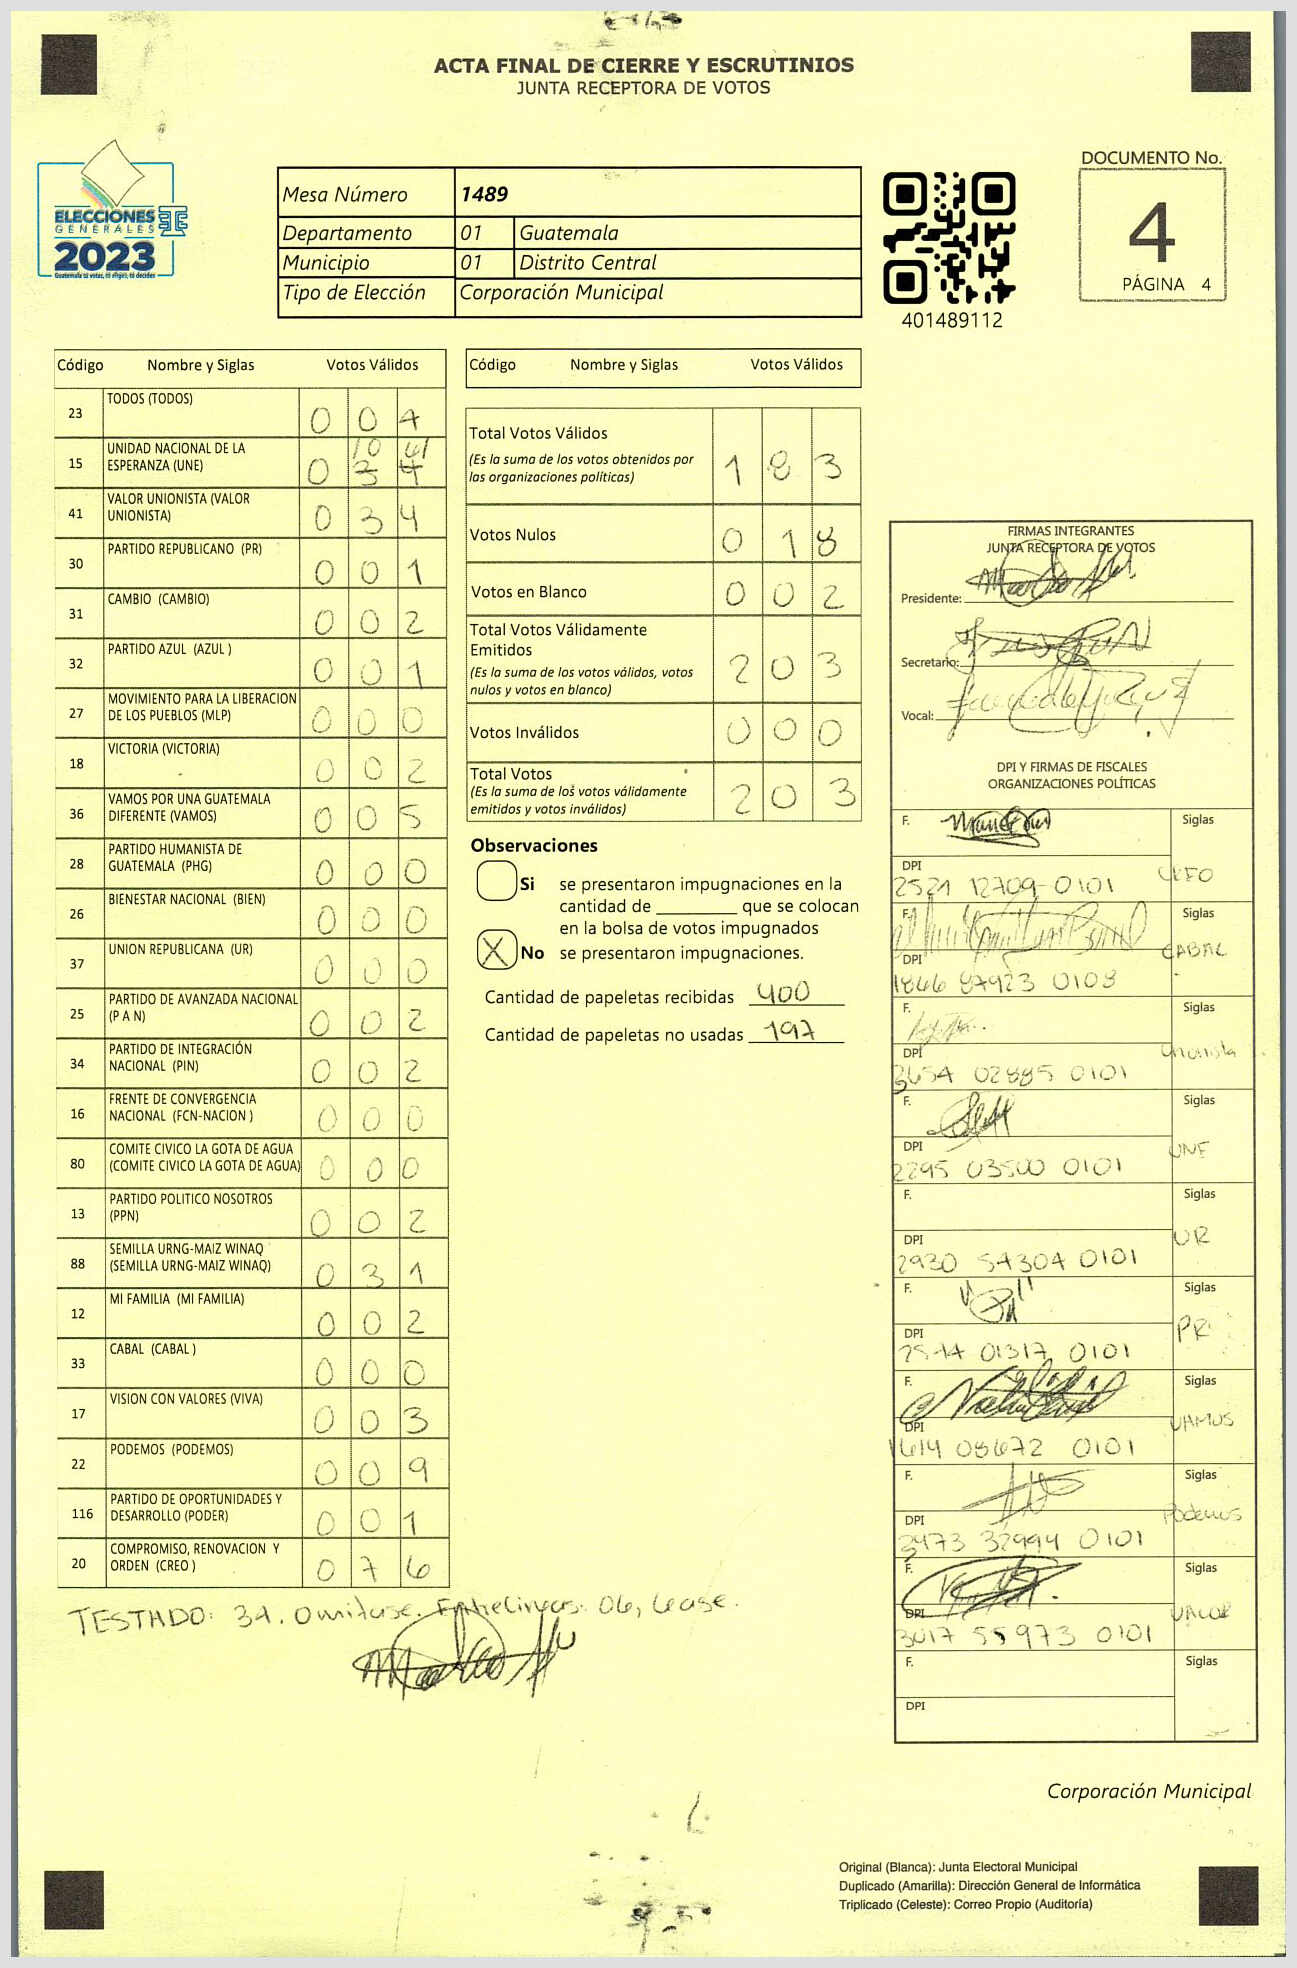 ACTA FINAL DE CIERRE Y ESCRUTINIOS
JUNTA RECEPTORA DE VOTOS
ELECCIONES
GENERALES
2023
Guatemala tú votas, tú eliges, tú decides
Mesa Número 1489
Departamento 01 Guatemala
Municipio 01 Distrito Central
Tipo de Elección Corporación Municipal
401489112
DOCUMENTO No.
4
PÁGINA 4
Código Nombre y Siglas Votos Válidos
23 TODOS (TODOS) 0 0 4
15 UNIDAD NACIONAL DE LA ESPERANZA (UNE) 0
41 VALOR UNIONISTA (VALOR UNIONISTA) 0 3 4
30 PARTIDO REPUBLICANO (PR) 0 0 1
31 CAMBIO (CAMBIO) 0 0 2
32 PARTIDO AZUL (AZUL ) 0 0 1
27 MOVIMIENTO PARA LA LIBERACION DE LOS PUEBLOS (MLP) 0 0 0
18 VICTORIA (VICTORIA) 0 0 2
36 VAMOS POR UNA GUATEMALA DIFERENTE (VAMOS) 0 0 5
28 PARTIDO HUMANISTA DE GUATEMALA (PHG) 0 0 0
26 BIENESTAR NACIONAL (BIEN) 0 0 0
37 UNION REPUBLICANA (UR) 0 0 0
25 PARTIDO DE AVANZADA NACIONAL (P A N) 0 0 2
34 PARTIDO DE INTEGRACIÓN NACIONAL (PIN) 0 0 2
16 FRENTE DE CONVERGENCIA NACIONAL (FCN-NACION ) 0 0 0
80 COMITE CIVICO LA GOTA DE AGUA (COMITE CIVICO LA GOTA DE AGUA) 0 0 0
13 PARTIDO POLITICO NOSOTROS (PPN) 0 0 2
88 SEMILLA URNG-MAIZ WINAQ (SEMILLA URNG-MAIZ WINAQ) 0 3 1
12 MI FAMILIA (MI FAMILIA) 0 0 2
33 CABAL (CABAL ) 0 0 0
17 VISION CON VALORES (VIVA) 0 0 3
22 PODEMOS (PODEMOS) 0 0 9
116 PARTIDO DE OPORTUNIDADES Y DESARROLLO (PODER) 0 0 1
20 COMPROMISO, RENOVACION Y ORDEN (CREO ) 0 7 6
TESTADO: 34. Omitase. Entrelineas: 06, Lease.
Código Nombre y Siglas Votos Válidos
Total Votos Válidos 1 8 3
(Es la suma de los votos obtenidos por
las organizaciones políticas)
Votos Nulos 0 1 8
Votos en Blanco 0 0 2
Total Votos Válidamente
Emitidos 2 0 3
(Es la suma de los votos válidos, votos
nulos y votos en blanco)
Votos Inválidos 0 0 0
Total Votos 2 0 3
(Es la suma de los votos válidamente
emitidos y votos inválidos)
Observaciones
Si se presentaron impugnaciones en la
cantidad de ________ que se colocan
en la bolsa de votos impugnados
X No se presentaron impugnaciones.
Cantidad de papeletas recibidas 400
Cantidad de papeletas no usadas 197
FIRMAS INTEGRANTES
JUNTA RECEPTORA DE VOTOS
Presidente:
Secretario:
Vocal:
DPI Y FIRMAS DE FISCALES
ORGANIZACIONES POLÍTICAS
F. Siglas
DPI CREO
2521 12709-0101
F. Siglas
DPI CABAL
1846 87923 0108
F. Siglas
DPI Unionista
3654 02885 0101
F. Siglas
DPI UNE
2295 03500 0101
F. Siglas
DPI UR
2930 54304 0101
F. Siglas
DPI PR
01317 0101
F. Siglas
DPI VAMOS
1614 08672 0101
F. Siglas
DPI Podemos
3473 32994 0101
F. Siglas
DPI VALOR
3017 55973 0101
F. Siglas
DPI
Corporación Municipal
Original (Blanca): Junta Electoral Municipal
Duplicado (Amarilla): Dirección General de Informática
Triplicado (Celeste): Correo Propio (Auditoría)